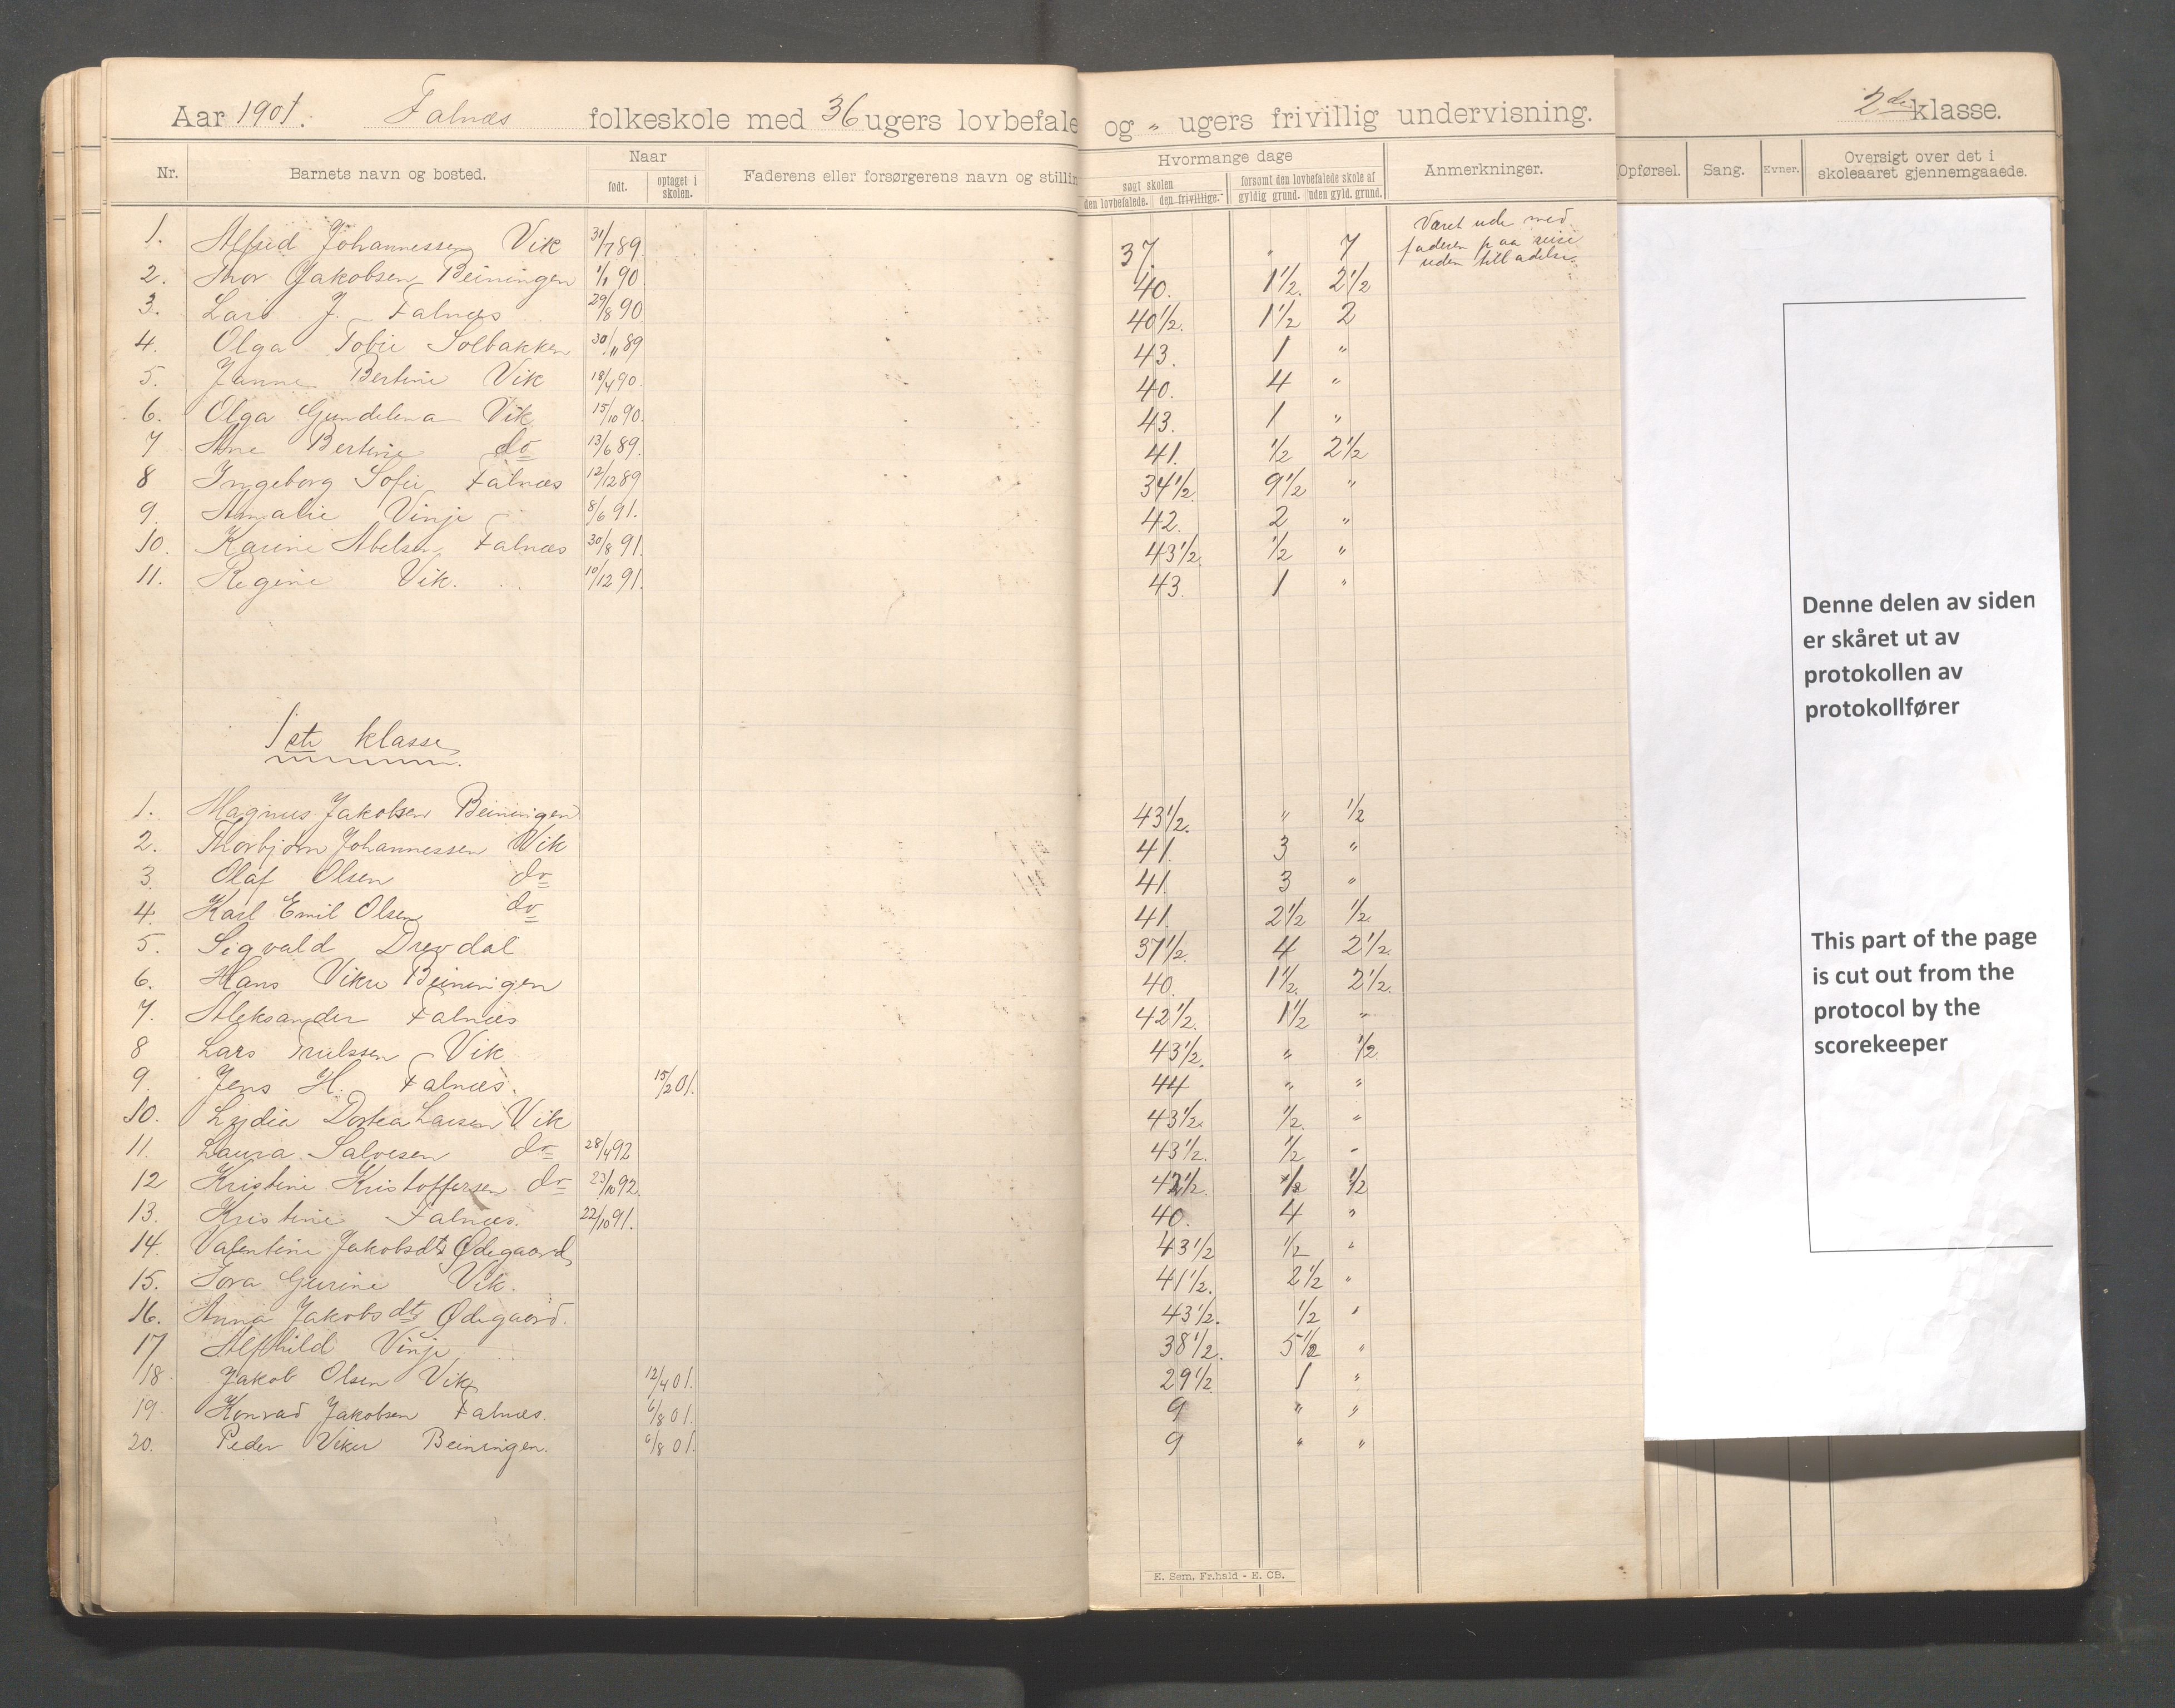 Aar 1901. Falnæs folkeskole med 36 ugers lovbefale og " ugers frivillig undervisning. 2den klasse.
Nr. Barnets navn og bosted. Naar født. optaget i skolen. Faderens eller forsørgerens navn og stillin Hvormange dage søgt skolen den lovbefalede. den frivillige. forsømt den lovbefalede skole af gyldig grund. uden gyld. grund. Anmerkninger. Opførsel. Sang. Evner. Oversigt over det i skoleaaret gjennemgaaede.
1. Alfred Johannessen Vik 31/7 89. 37. " 7 Været ude med faderen paa reise uden tilladelse.
2. Thor Jakobsen Beiningen 1/1 90. 40. 1 1/2. 2 1/2
3. Lars J. Falnæs 29/8 90 40 1/2. 1 1/2 2
4. Olga Tobie Solbakken 30/11 89 43. 1 "
5. Janne Bertine Vik 18/4 90. 40. 4 "
6. Olga Gundelena Vik 15/10 90. 43. 1 "
7 Ane Bertine do 13/6 89. 41. 1/2 2 1/2
8 Ingeborg Sofie Falnæs 12/12 89 34 1/2. 9 1/2 "
9. Amalie Vinje 8/6 91. 42. 2 "
10. Karine Abelsen Falnæs 30/8 91. 43 1/2. 1/2 "
11. Regine Vik. 10/12 91. 43. 1 "
1ste klasse.
1. Magnus Jakobsen Beiningen 43 1/2. " 1/2
2. Thorbjørn Johannessen Vik 41. 3 "
3. Olaf Olsen do 41. 3 "
4. Karl Emil Olsen do 41. 2 1/2 1/2.
5. Sigvald Drevdal 37 1/2. 4 2 1/2.
6. Hans Vikre Beiningen 40. 1 1/2. 2 1/2.
7. Aleksander Falnæs 42 1/2. 1 1/2 "
8 Lars Trulssen Vik 43 1/2. " 1/2.
9. Jens H. Falnæs. 15/2 01. 44 " "
10. Lydia Dortea Larsen Vik 43 1/2. 1/2. "
11. Laura Salvesen do 28/4 92 43 1/2. 1/2 "
12 Kristine Kristoffersen do 23/10 92. 42 1/2. 1/2 1/2
13. Kristine Falnæs. 22/10 91. 40. 4 "
14. Valentine Jakobsdtr Ødegaard 43 1/2 1/2 "
15. Tora Gurine Vik. 41 1/2. 2 1/2 "
16. Anna Jakobsdtr Ødegaard. 43 1/2. 1/2 "
17 Alfhild Vinje 38 1/2. 5 1/2 "
18. Jakob Olsen Vik 12/4 01. 29 1/2. 1 "
19. Konrad Jakobsen Falnæs. 6/8 01. 9 " "
20. Peder Vikre Beiningen. 6/8 01. 9 " "
E. Sem, Fr.hald - E. CB.
Denne delen av siden
er skåret ut av
protokollen av
protokollfører
This part of the page
is cut out from the
protocol by the
scorekeeper